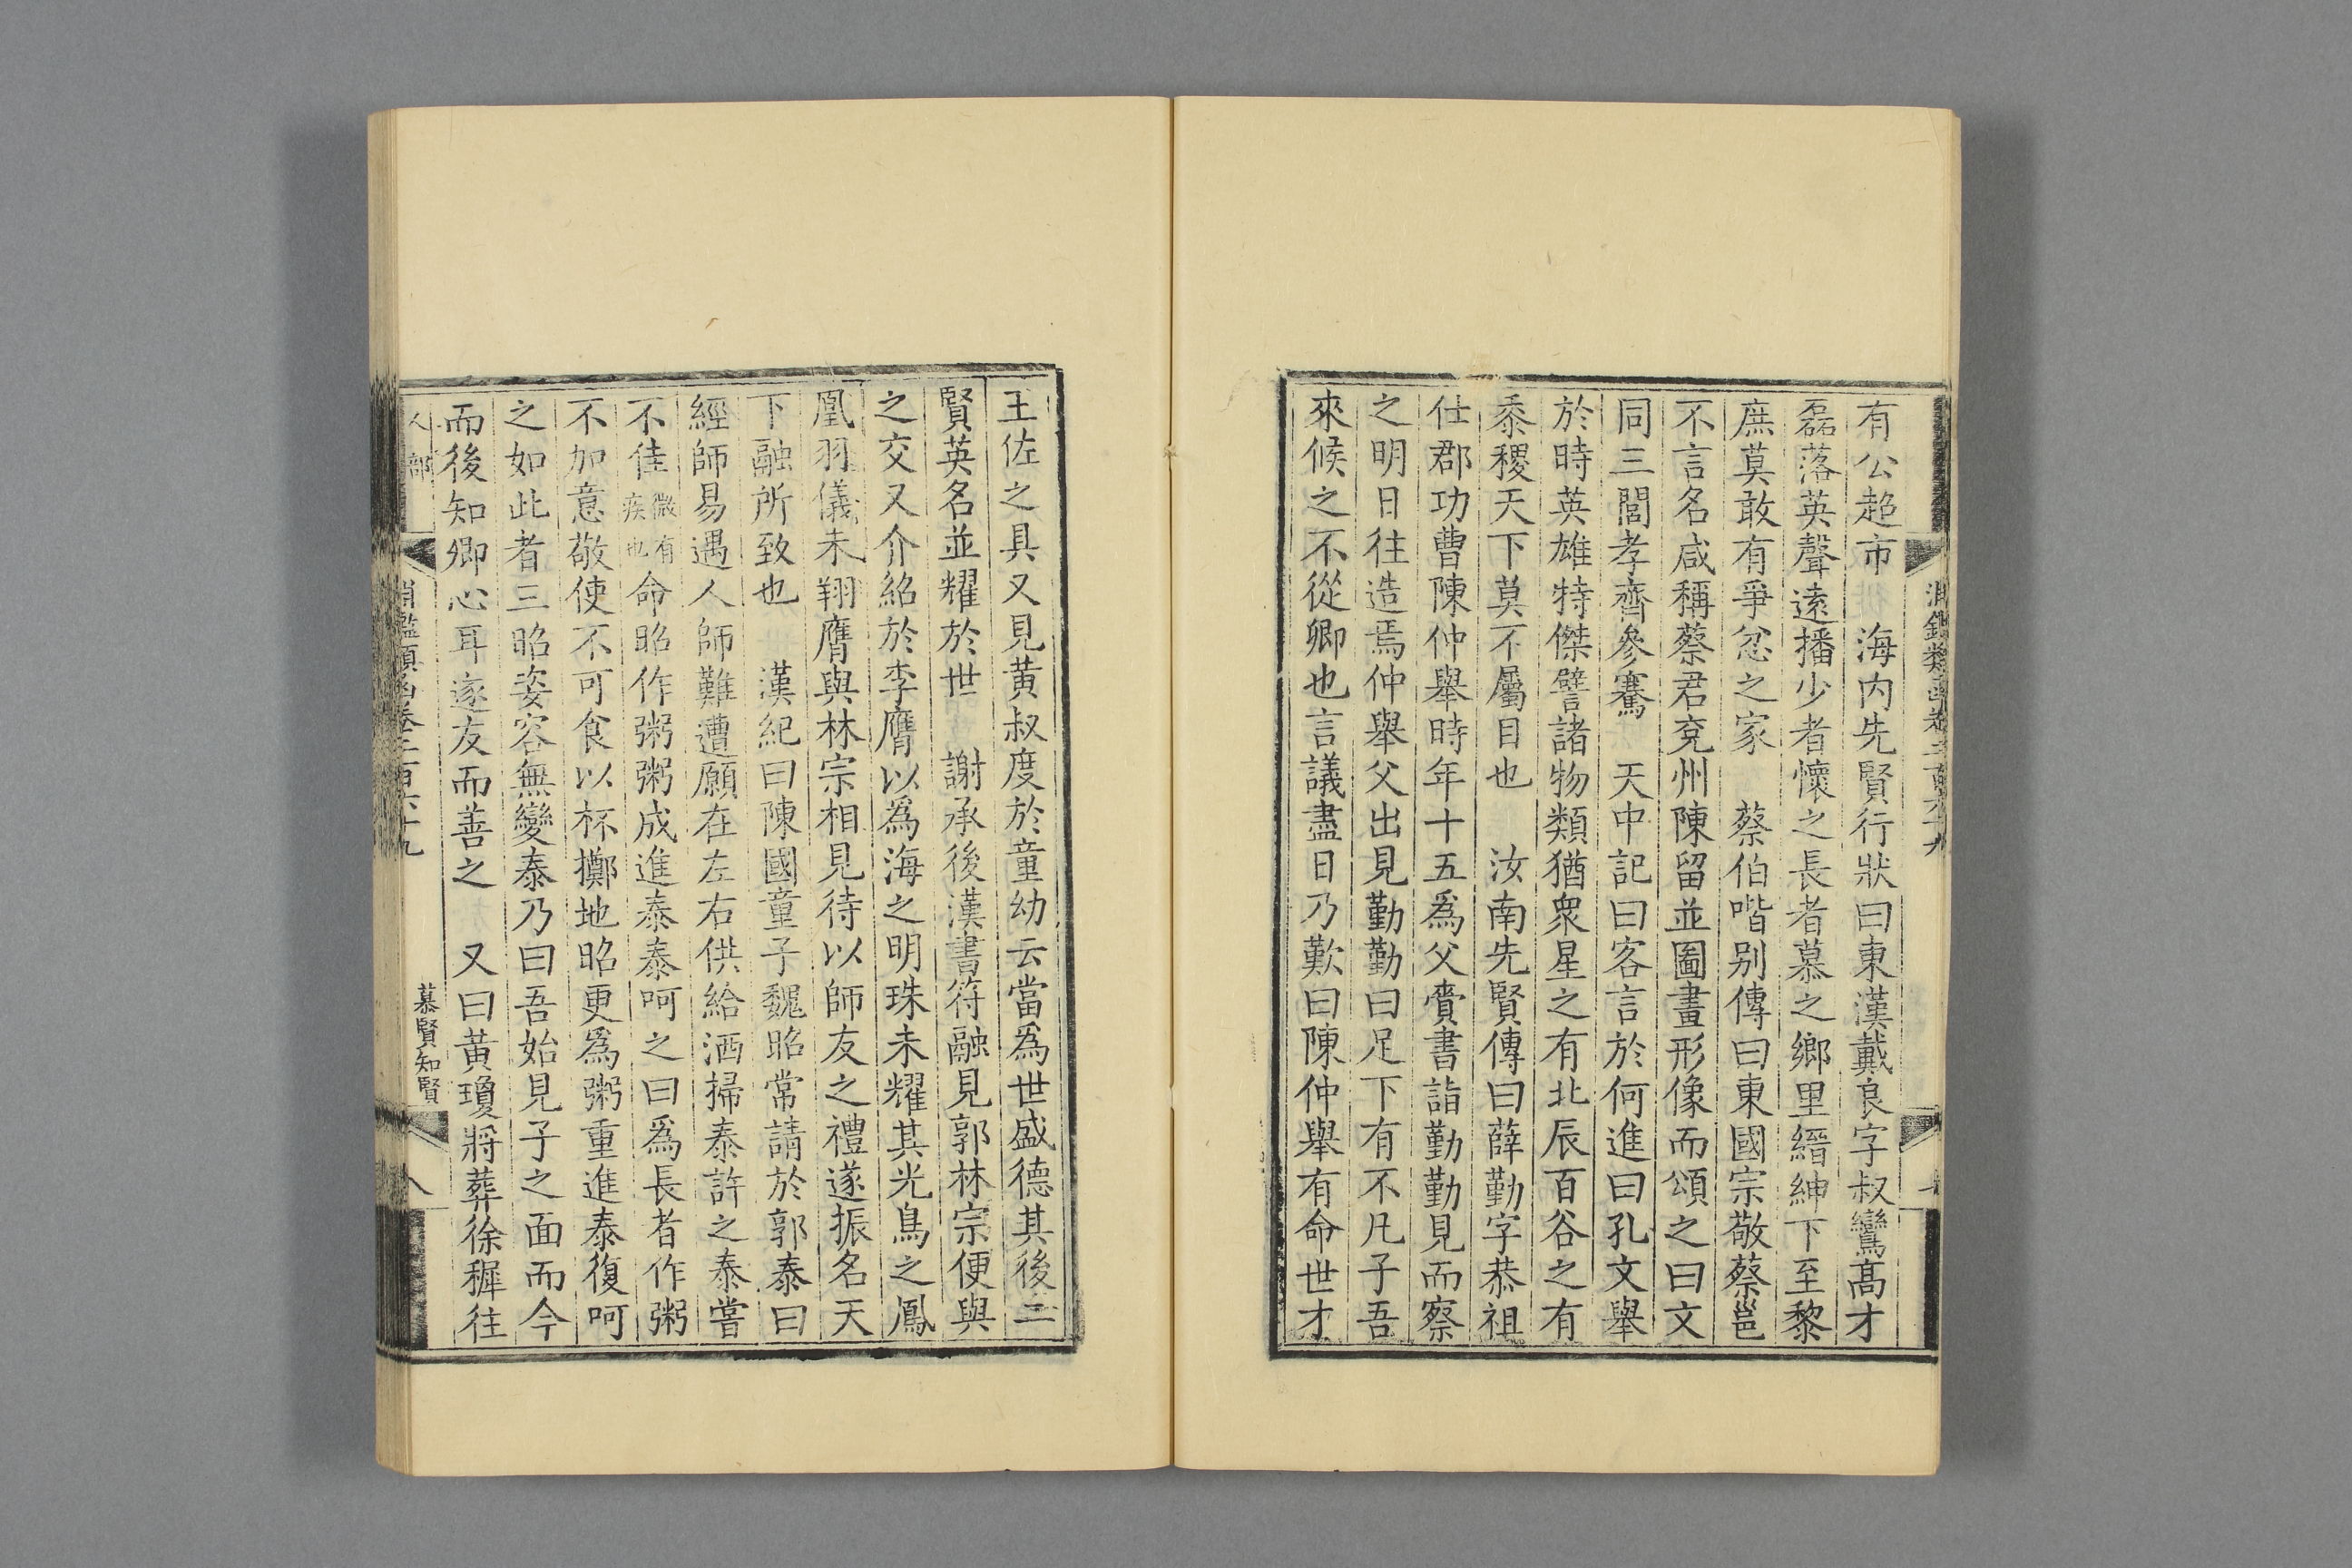 有公超市 海内先賢行狀曰東漢戴良字叔鸞髙才
磊落英聲逺播少者懷之長者慕之鄉里縉紳下至黎
庶莫敢有爭忿之家 蔡伯喈别傳曰東國宗敬蔡邕
不言名咸稱蔡君兗州陳留並圖畫形像而頌之曰文
同三閭孝齊參騫 天中記曰客言於何進曰孔文舉
於時英雄特傑譬諸物類猶衆星之有北辰百谷之有
黍稷天下莫不屬目也 汝南先賢傳曰薛勤字恭祖
仕郡功曹陳仲舉時年十五爲父賫書詣勤勤見而察
之明日往造焉仲舉父出見勤勤曰足下有不凡子吾
來候之不從卿也言議盡日乃歎曰陳仲舉有命世才
王佐之具又見黄叔度於童幼云當爲世盛德其後二
賢英名並耀於世 謝承後漢書符融見郭林宗便與
之交又介紹於李膺以爲海之明珠未耀其光鳥之鳳
凰羽儀未翔膺與林宗相見待以師友之禮遂振名天
下融所致也 漢紀曰陳國童子魏昭常請於郭泰曰
經師易遇人師難遭願在左右供給洒掃泰許之泰嘗
不佳微有疾也命昭作粥粥成進泰泰呵之曰爲長者作粥
不加意敬使不可食以杯擲地昭更爲粥重進泰復呵
之如此者三昭姿容無變泰乃曰吾始見子之面而今
而後知卿心耳遂友而善之 又曰黄瓊將葬徐穉往
人部
慕賢知賢
八